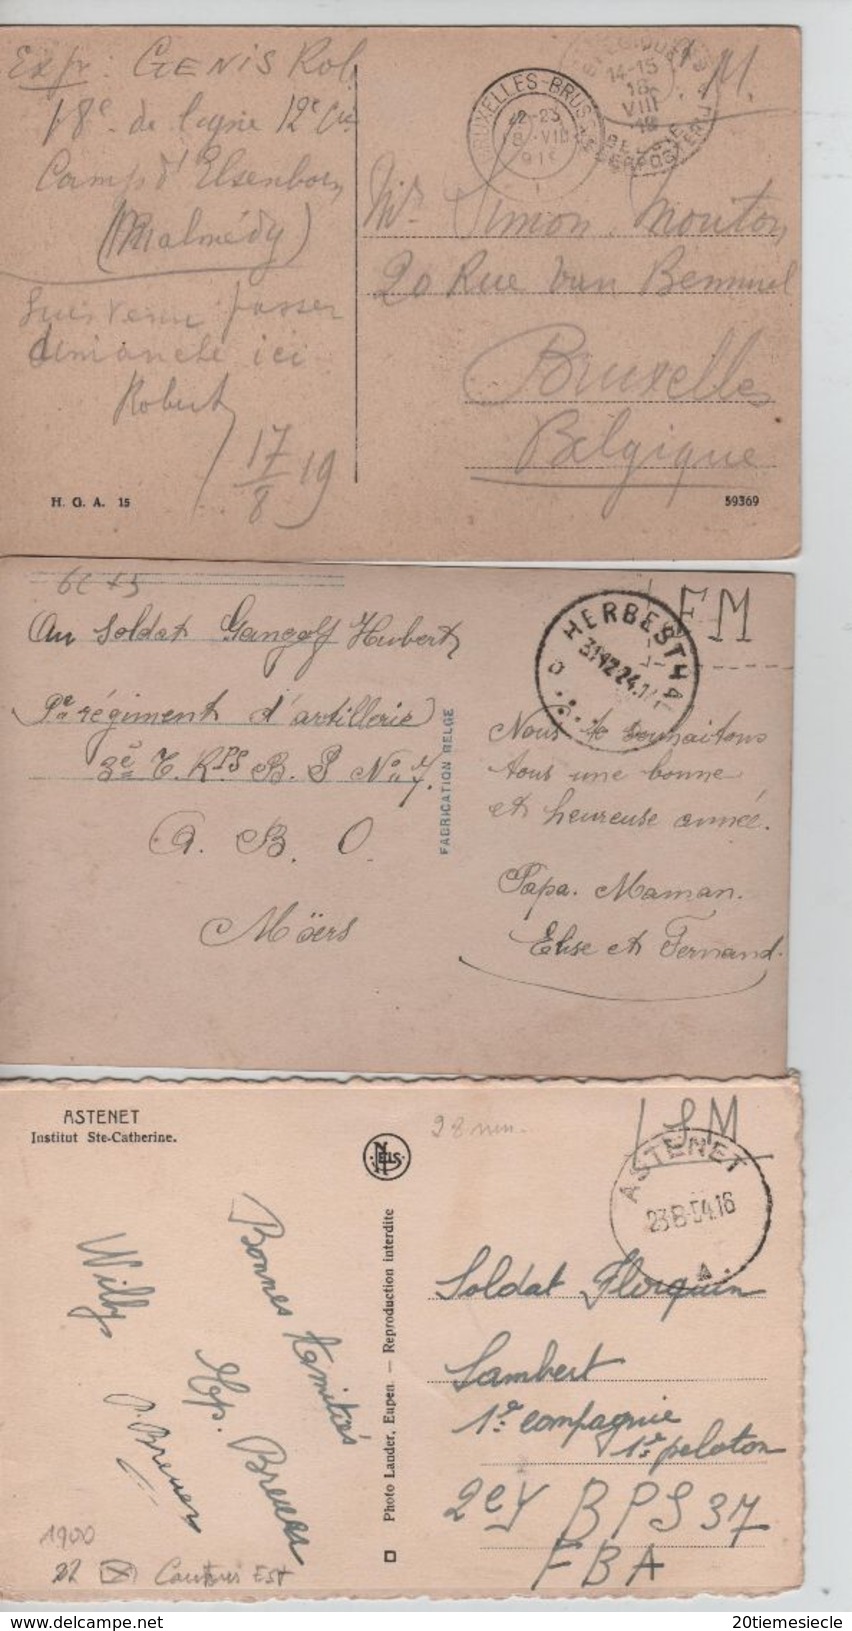 Expr: GENIS Rob.
18e de ligne 12e Cie
Camp d'Elsenborn
(Malmédy)
Suis venu passer
dimanche ici
Robert
17/8 19
H. G. A. 15
BRUXELLES-BRUS
14-15
18
VIII
19
M.
Mr Simon Mouton
20 Rue Van Bemmel
Bruxelles
Belgique
59369
Au soldat Gangolf Hubert
2e régiment d'artillerie
3e B. P No 7.
A. B. O.
Möers
FABRICATION BELGE
HERBESTHAL
FM
Nous te souhaitons
tous une bonne
et heureuse année.
Papa. Maman.
Elise et Fernand.
ASTENET
Institut Ste-Catherine.
NELS
28 mm.
SM
ASTENET
23-8-54.16
Bonnes Amitiés
Willy
Breuer
P. Breuer
Photo Lander, Eupen. — Reproduction interdite
Soldat Florquin
Lambert
1re compagnie
1er peloton
BPS 37
FBA
1900
22 Cantons Est
20tiemesiecle